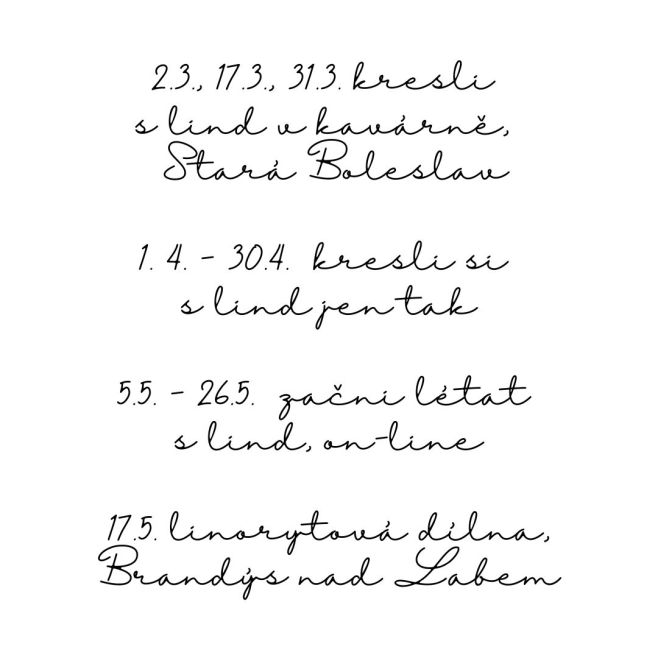 2.3., 17.3., 31.3. kresli
s lind v kavárně,
Stará Boleslav
1. 4. - 30.4. kresli si
s lind jen tak
5.5. - 26.5. začni létat
s lind, on-line
17.5. linorytová dílna,
Brandýs nad Labem